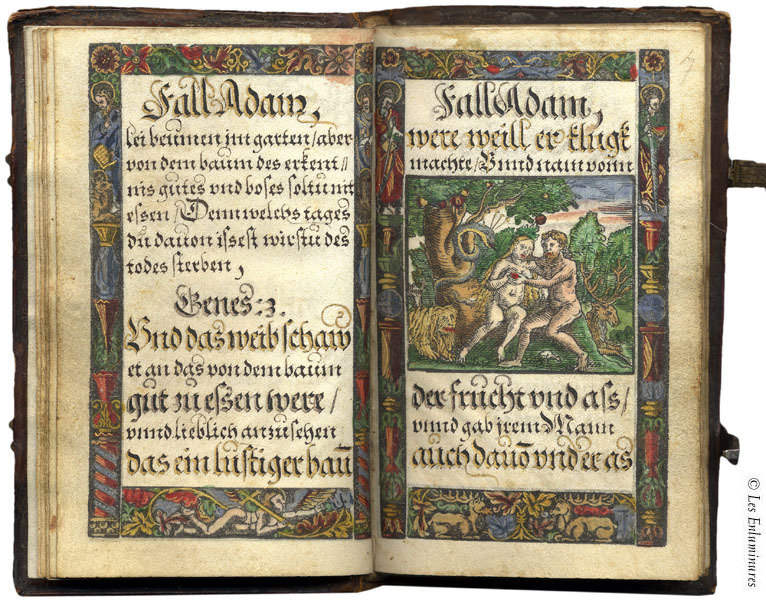 Fall Adam,
lei beumen im garten/aber
von dem baum des erkent//
nis gutes vnd boses soltu nit
essen/Denn welchs tages
du dauon issest wirstu des
todes sterben,
Genes: 3.
Vnd das weib schaw
et an das von dem baum
gut zu essen were/
vnnd lieblich anzusehen
das ein lustiger baū
Fall Adam,
were weill er klugk
machte/Vnnd nam vonn
der frucht vnd ass/
vnnd gab jrem Mann
auch dauō vnd er as
© Les Enluminures